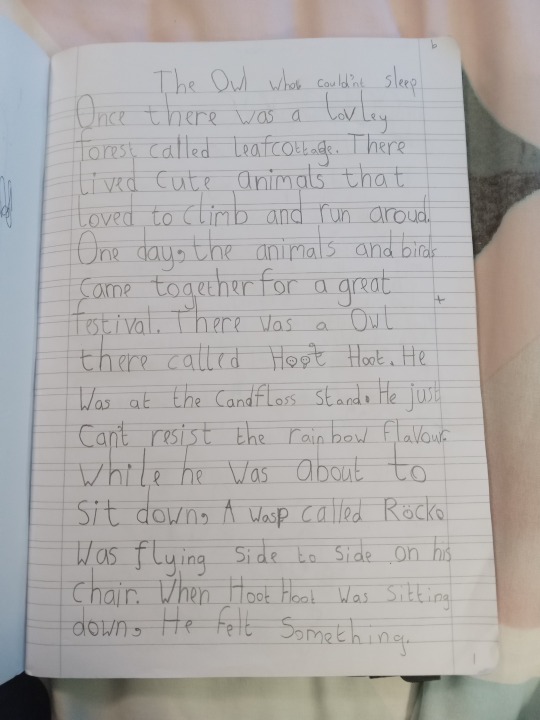 6
The Owl who couldn't sleep
Once there was a lovley
forest called leafcottage. There
lived cute animals that
loved to climb and run aroud.
One day, the animals and birds
came together for a great
festival. There was a Owl
there called Hoot Hoot. He
was at the Candfloss stand. He just
can't resist the rainbow flavour.
While he was about to
sit down, A wasp called Rocko
was flying side to side on his
chair. When Hoot Hoot was sitting
down, He felt something.
1